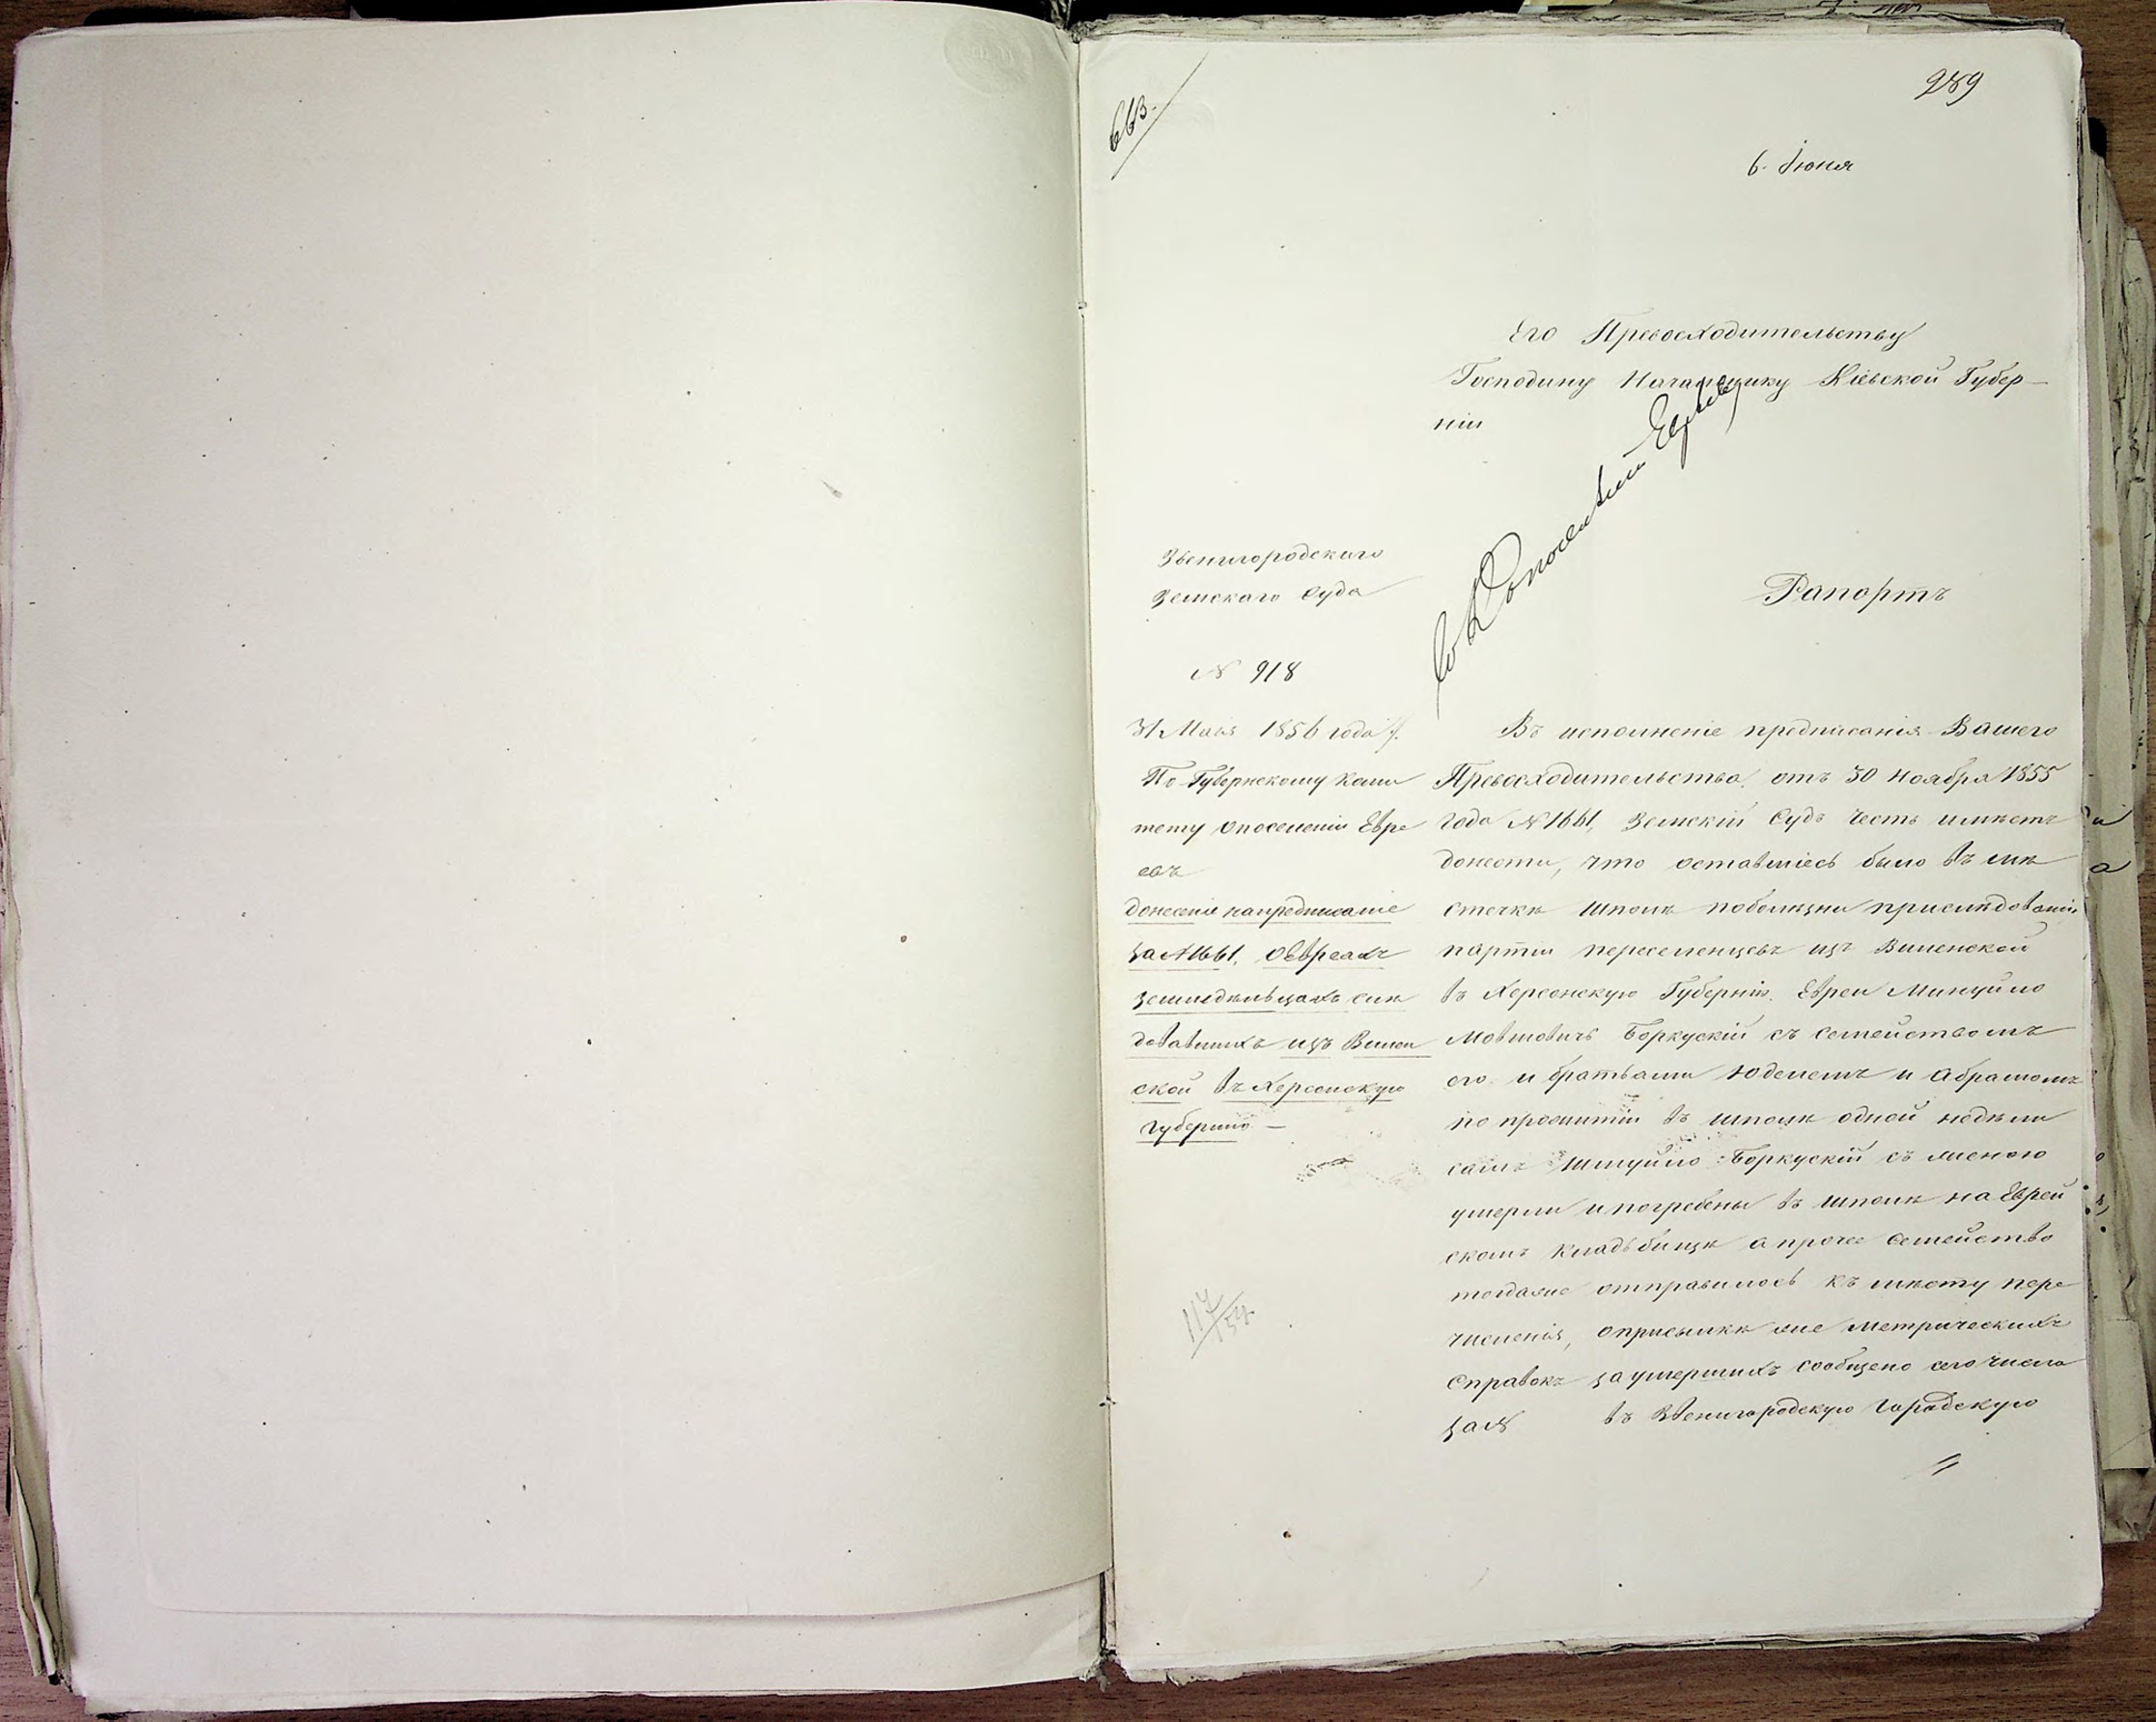 289
663.
6. Іюня
Его Превосходительству
Господину Начальнику Кіевской Губер-
ніи
Звенигородскаго
Земскаго Суда
Рапортъ
№ 918
31 Маія 1856 года
По Губернскому Коми
тету о поселеніи Евре
евъ
донесеніе на предписаніе
за № 1661. о Евреахъ
земледѣльцахъ слѣ
довавшихъ изъ Вилен
ской въ Херсонскую
губернію —
117/154
Въ исполненіе предписанія Вашего
Превосходительства отъ 30 Ноября 1855
года № 1661, Земскій Судъ честь имѣетъ
донести, что оставшіесь было въ мѣ
стечкѣ Шполѣ по болѣзни при слѣдованіи
партіи переселенцевъ изъ Виленской
въ Херсонскую Губернію. Евреи
Мовшовичъ Боркускій съ семействомъ
его и братьами Юделемъ и Абрамомъ
по прожитіи въ Шполѣ одной недѣли
самъ Боркускій съ женою
умерли и погребены въ Шполѣ на Еврей
скомъ кладьбищѣ а прочее семейство
тогдаже отправилось къ мѣсту пере
численія, о присылкѣ же метрическихъ
справокъ за умершихъ сообщено сего числа
за № въ Звенигородскую Городскую